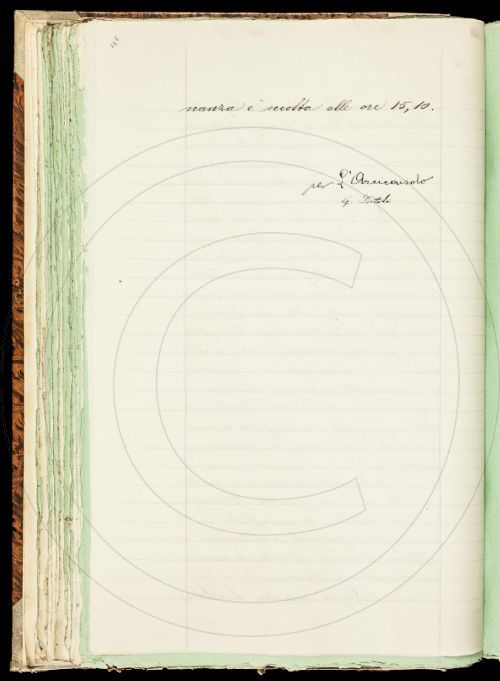 nanza è sciolta alle ore 15,10.
per L'Arciconsolo
G. Tortoli